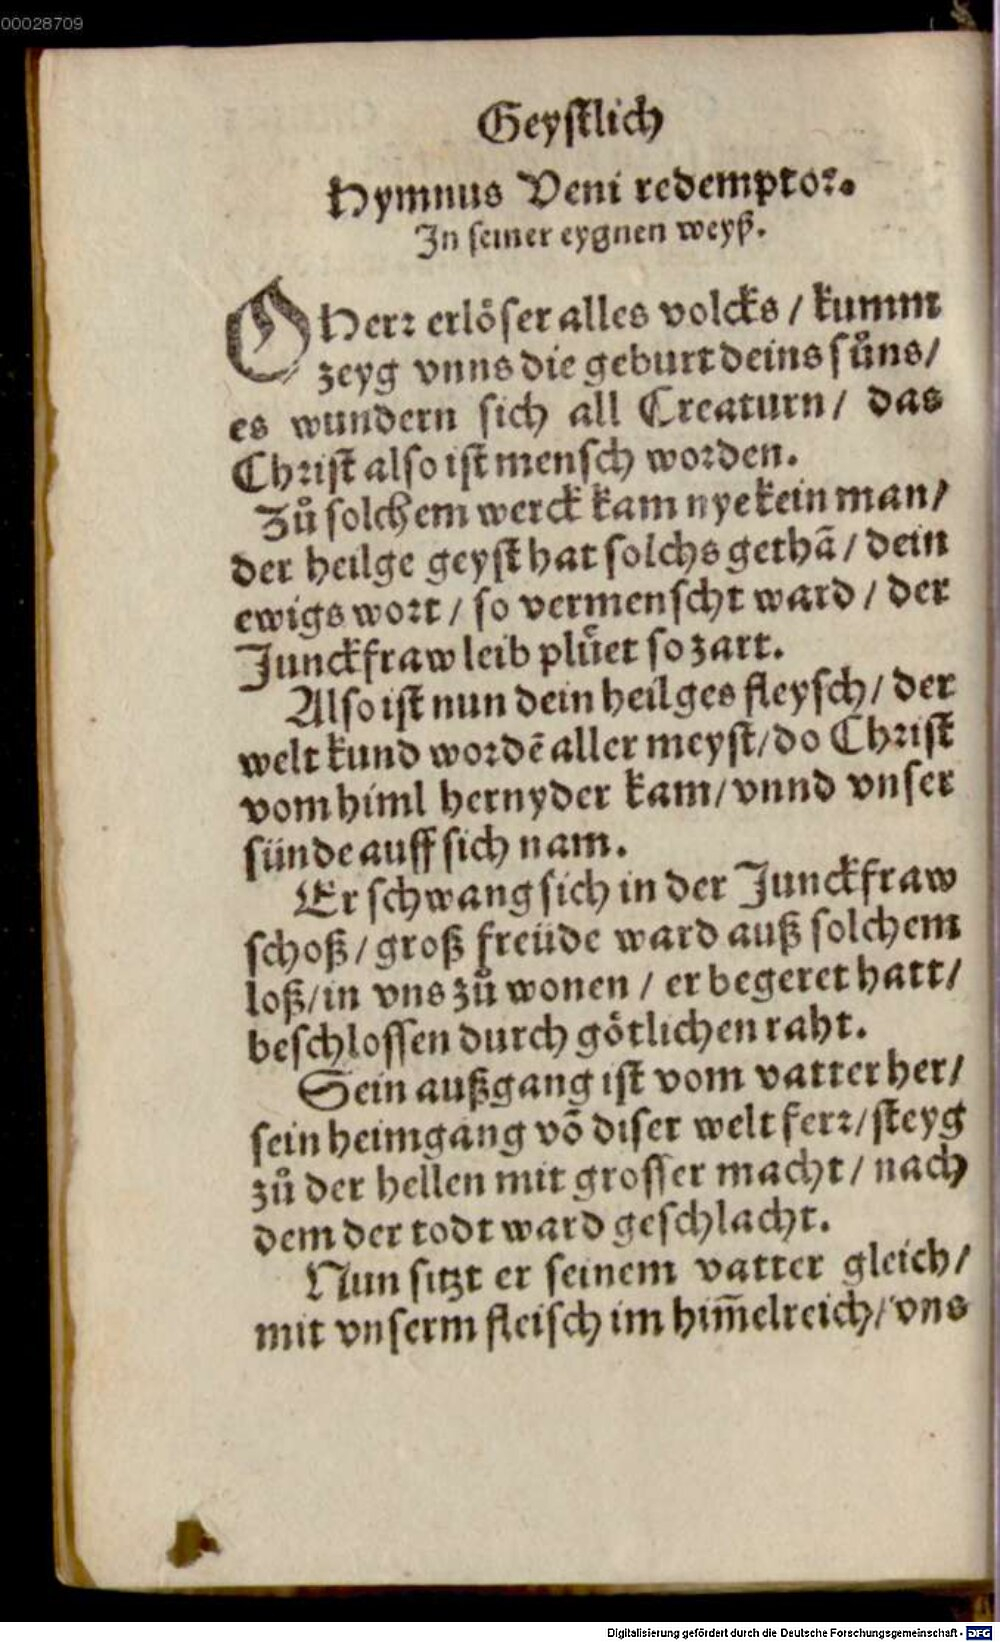 00028709
Geystlich
Hymnus Veni redemptor.
In seiner eygnen weyß.
O Herr erlöser alles volcks / kumm
zeyg vnns die geburt deins sůns /
es wundern sich all Creaturn / das
Christ also ist mensch worden.
Zů solchem werck kam nye kein man /
der heilge geyst hat solchs gethã / dein
ewigs wort / so vermenscht ward / der
Junckfraw leib plüet so zart.
Also ist nun dein heilges fleysch / der
welt kund wordẽ aller meyst / do Christ
vom himl hernyder kam / vnnd vnser
sünde auff sich nam.
Er schwang sich in der Junckfraw
schoß / groß freüde ward auß solchem
loß / in vns zů wonen / er begeret hatt /
beschlossen durch götlichen raht.
Sein außgang ist vom vatter her /
sein heimgang võ diser welt ferr / steyg
zů der hellen mit grosser macht / nach
dem der todt ward geschlacht.
Nun sitzt er seinem vatter gleich /
mit vnserm fleisch im him̃elreich / vns
Digitalisierung gefördert durch die Deutsche Forschungsgemeinschaft - DFG